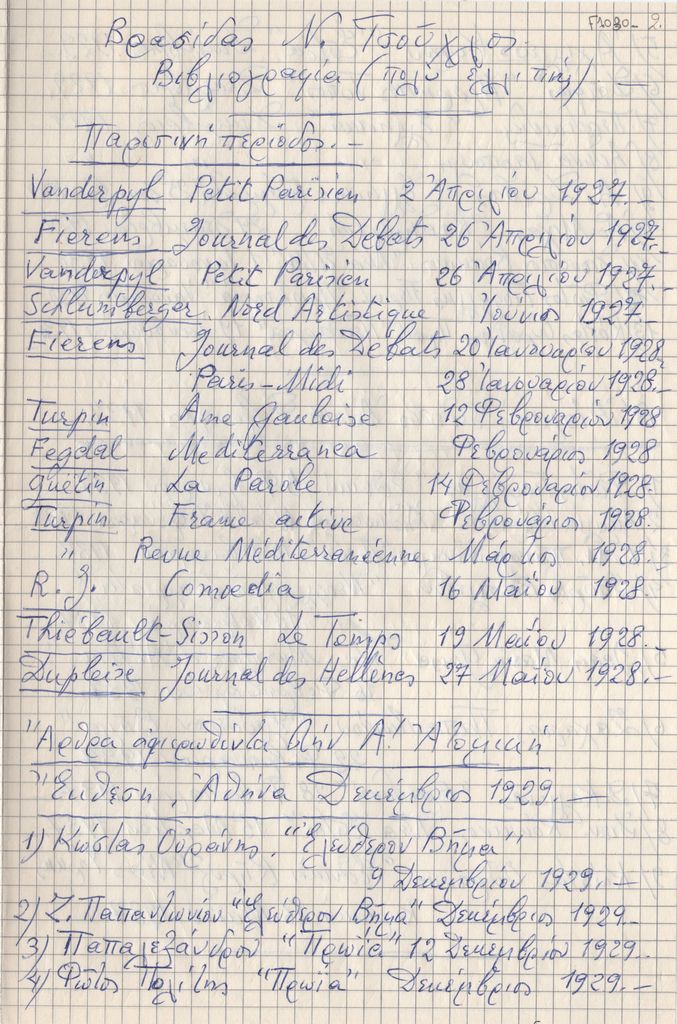 Γ1030- 2.
Βρασίδας Ν. Τσούχλος.
Βιβλιογραφία (πολύ ἐλλιπής). —
Παρισινή περίοδος. —
Vanderpyl Petit Parisien 2 Ἀπριλίου 1927. —
Fierens Journal des Débats 26 Ἀπριλίου 1927. —
Vanderpyl Petit Parisien 26 Ἀπριλίου 1927. —
Schlumberger Nord Artistique Ἰούνιος 1927. —
Fierens Journal des Débats 20 Ἰανουαρίου 1928.
Paris-Midi 28 Ἰανουαρίου 1928. —
Turpin Ame Gauloise 12 Φεβρουαρίου 1928
Fegdal Mediterranea Φεβρουάριος 1928
Guétin La Parole 14 Φεβρουαρίου 1928.
Turpin France active Φεβρουάριος 1928.
" Revue Méditerranéenne Μάρτιος 1928. —
R. J. Comoedia 16 Μαΐου 1928.
Thiébault-Sisson Le Temps 19 Μαΐου 1928. —
Journal des Hellènes 27 Μαΐου 1928. —
Ἄρθρα ἀφιερωθέντα στήν Α! Ἀτομική
Ἔκθεση, Ἀθήνα Δεκέμβριος 1929. —
1) Κώστας Οὐράνης, "Ἐλεύθερον Βῆμα"
9 Δεκεμβρίου 1929. —
2) Ζ. Παπαντωνίου "Ἐλεύθερον Βῆμα" Δεκέμβριος 1929 —
3) Παπαλεξάνδρου "Πρωΐα" 12 Δεκεμβρίου 1929..
4) Φῶτος Πολίτης "Πρωΐα" Δεκέμβριος 1929. —